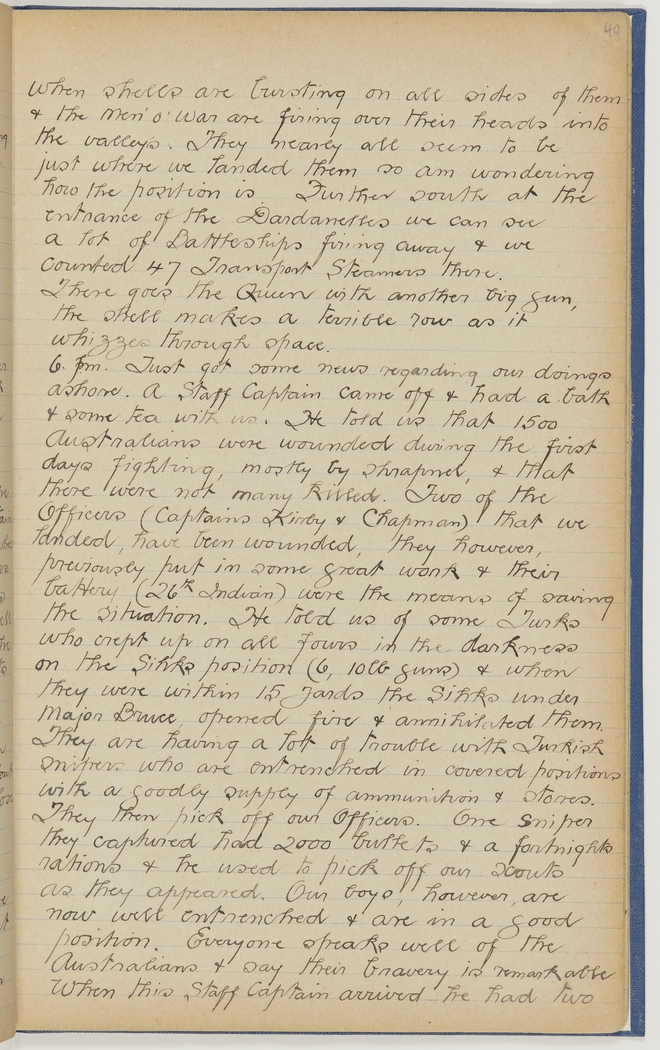 49
when shells are bursting on all sides of them
& the Men'o'War are firing over their heads into
the valleys. They nearly all seem to be
just where we landed them so am wondering
how the position is Further south at the
entrance of the Dardanelles we can see
a lot of Battleships firing away & we
counted 47 Transport Steamers there.
There goes the Queen with another big gun,
the shell makes a terrible row as it
whizzes through space.
6. pm. Just got some news regarding our doings
ashore. A Staff Captain came off & had a bath
& some tea with us. He told us that 1500
Australians were wounded during the first
days fighting, mostly by shrapnel, & that
there were not many killed. Two of the
Officers (Captains Kirby & Chapman) that we
landed, have been wounded, they however,
previously put in some great work & their
battery (26th Indian) were the means of saving
the situation. He told us of some Turks
who crept up on all fours in the darkness
on the Sihks position (6, 10lb guns) & when
they were within 15 yards the Sihks under
Major Bruce, opened fire & annihilated them.
They are having a lot of trouble with Turkish
snipers who are entrenched in covered positions
with a goodly supply of ammunition & stores.
They then pick off our Officers. One sniper
they captured had 2000 bullets & a fortnights
rations & he used to pick off our scouts
as they appeared. Our boys, however, are
now well entrenched & are in a good
position. Everyone speaks well of the
Australians & say their bravery is remarkable
When this Staff Captain arrived he had two